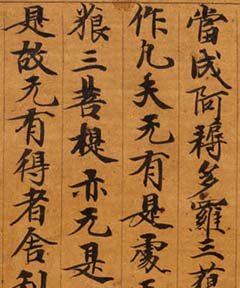 當成阿耨多羅三藐
作凡夫无有是處无
藐三菩提亦无是
是故无有得者舍利